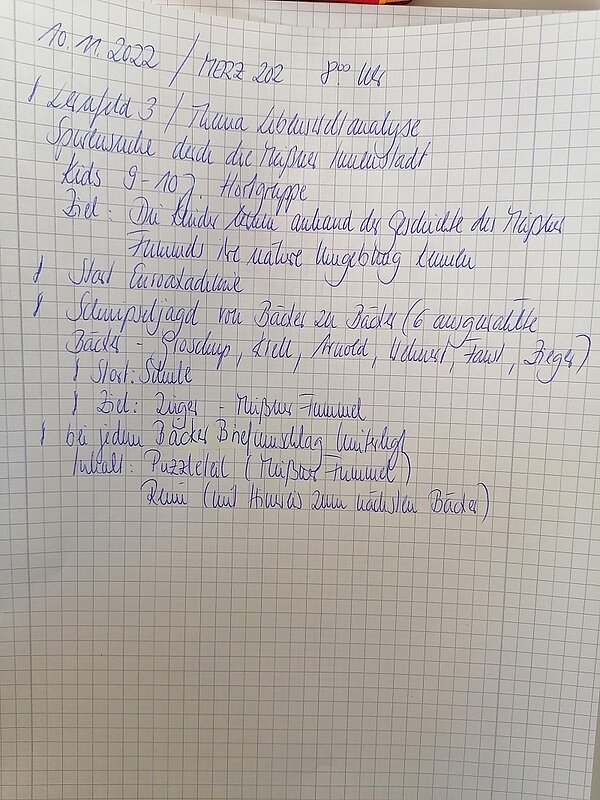 10.11.2022 / MERZ 202 8⁰⁰ Uhr
Lernfeld 3 / Thema Lebensweltanalyse
Spurensuche durch die Meißner Innenstadt
Kids 9-10J. Hortgruppe
Ziel: Die Kinder lernen anhand der Geschichte des Meißner
Fummels ihre nähere Umgebung kennen
Start Euroakademie
Schnipseljagd von Bäcker zu Bäcker (6 ausgewählte
Bäcker - Arnold, Faust, Zieger)
Start: Schule
Ziel: Zieger - Meißner Fummel
bei jedem Bäcker Briefumschlag hinterlegt
Inhalt: Puzzleteil (Meißner Fummel)
(mit Hinweis zum nächsten Bäcker)